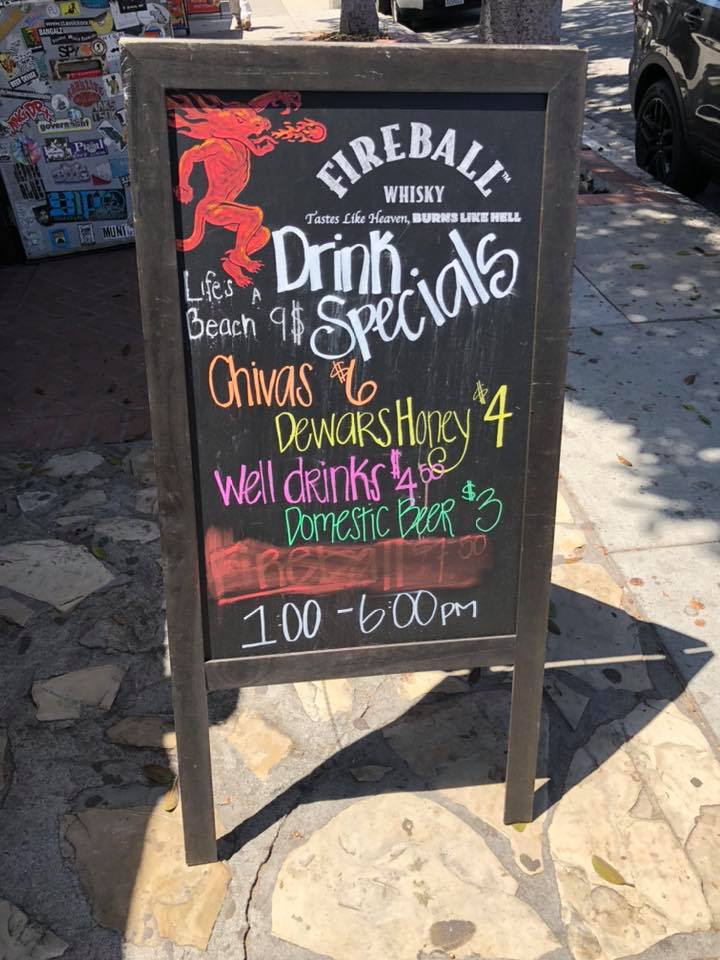 FIREBALL™
WHISKY
Tastes Like Heaven, BURNS LIKE HELL
Drink
Specials
Life's A
Beach 9$
Chivas $6
Dewars Honey $4
Well drinks $4.50
Domestic Beer $3
Fireball
1:00 - 6:00 PM
BANGALZ
government
MUNI